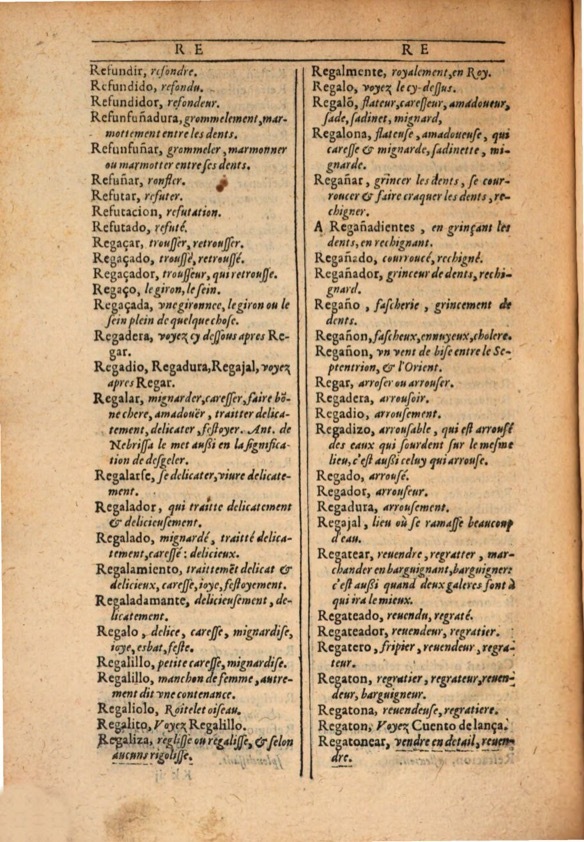 R E
Refundir, refondre.
Refundido, refondu.
Refundidor, refondeur.
Refunfuñadura, grommelement, mar-
mottement entre les dents.
Refunfuñar, grommeler, marmonner
ou marmotter entre ses dents.
Refuñar, ronfler.
Refutar, refuter.
Refutacion, refutation.
Refutado, refuté.
Regaçar, trousser, retrousser.
Regaçado, troussé, retroussé.
Regaçador, trousseur, qui retrousse.
Regaço, le giron, le sein.
Regaçada, vne gironnee, le giron ou le
sein plein de quelque chose.
Regadera, voyez cy dessous apres Re-
gar.
Regadio, Regadura, Regajal, voyez
apres Regar.
Regalar, mignarder, caresser, faire bõ-
ne chere, amadoüer, traitter delicate-
ment, delicater, festoyer. Ant. de
Nebrissa le met aussi en la significa-
tion de desgeler.
Regalarse, se delicater, viure delicate-
ment.
Regalador, qui traitte delicatement
& delicieusement.
Regalado, mignardé, traitté delica-
tement, caressé: delicieux.
Regalamiento, traittemẽt delicat &
delicieux, caresse, ioye, festoyement.
Regaladamante, delicieusement, de-
licatement.
Regalo, delice, caresse, mignardise,
ioye, esbat, feste.
Regalillo, petite caresse, mignardise.
Regalillo, manchon de femme, autre-
ment dit vne contenance.
Regaliolo, Roitelet oiseau.
Regalito, Voyez Regalillo.
Regaliza, reglisse ou regalisse, & selon
aucuns rigolisse.
R E
Regalmente, royalement, en Roy.
Regalo, voyez le cy-dessus.
Regalõ, flateur, caresseur, amadoueur,
sade, sadinet, mignard,
Regalona, flateuse, amadoueuse, qui
caresse & mignarde, sadinette, mi-
gnarde.
Regañar, grincer les dents, se cour-
roucer & faire craquer les dents, re-
chigner.
A Regañadientes, en grinçant les
dents, en rechignant.
Regañado, courroucé, rechigné.
Regañador, grinceur de dents, rechi-
gnard.
Regaño, fascherie, grincement de
dents.
Regañon, fascheux, ennuyeux, cholere.
Regañon, vn vent de bise entre le Se-
ptentrion, & l'Orient.
Regar, arroser ou arrouser.
Regadera, arrousoir.
Regadio, arrousement.
Regadizo, arrousable, qui est arrousé
des eaux qui sourdent sur le mesme
lieu, c'est aussi celuy qui arrouse.
Regado, arrousé.
Regador, arrouseur.
Regadura, arrousement.
Regajal, lieu où se ramasse beaucoup
d'eau.
Regatear, reuendre, regratter, mar-
chander en barguignant, barguigner:
c'est aussi quand deux galeres font à
qui ira le mieux.
Regateado, reuendu, regraté.
Regateador, reuendeur, regratier.
Regatero, fripier, reuendeur, regra-
teur.
Regaton, regratier, regrateur, reuen-
deur, barguigneur.
Regatona, reuendeuse, regratiere.
Regaton, Voyez Cuento de lança.
Regatonear, vendre en detail, reuen-
dre.